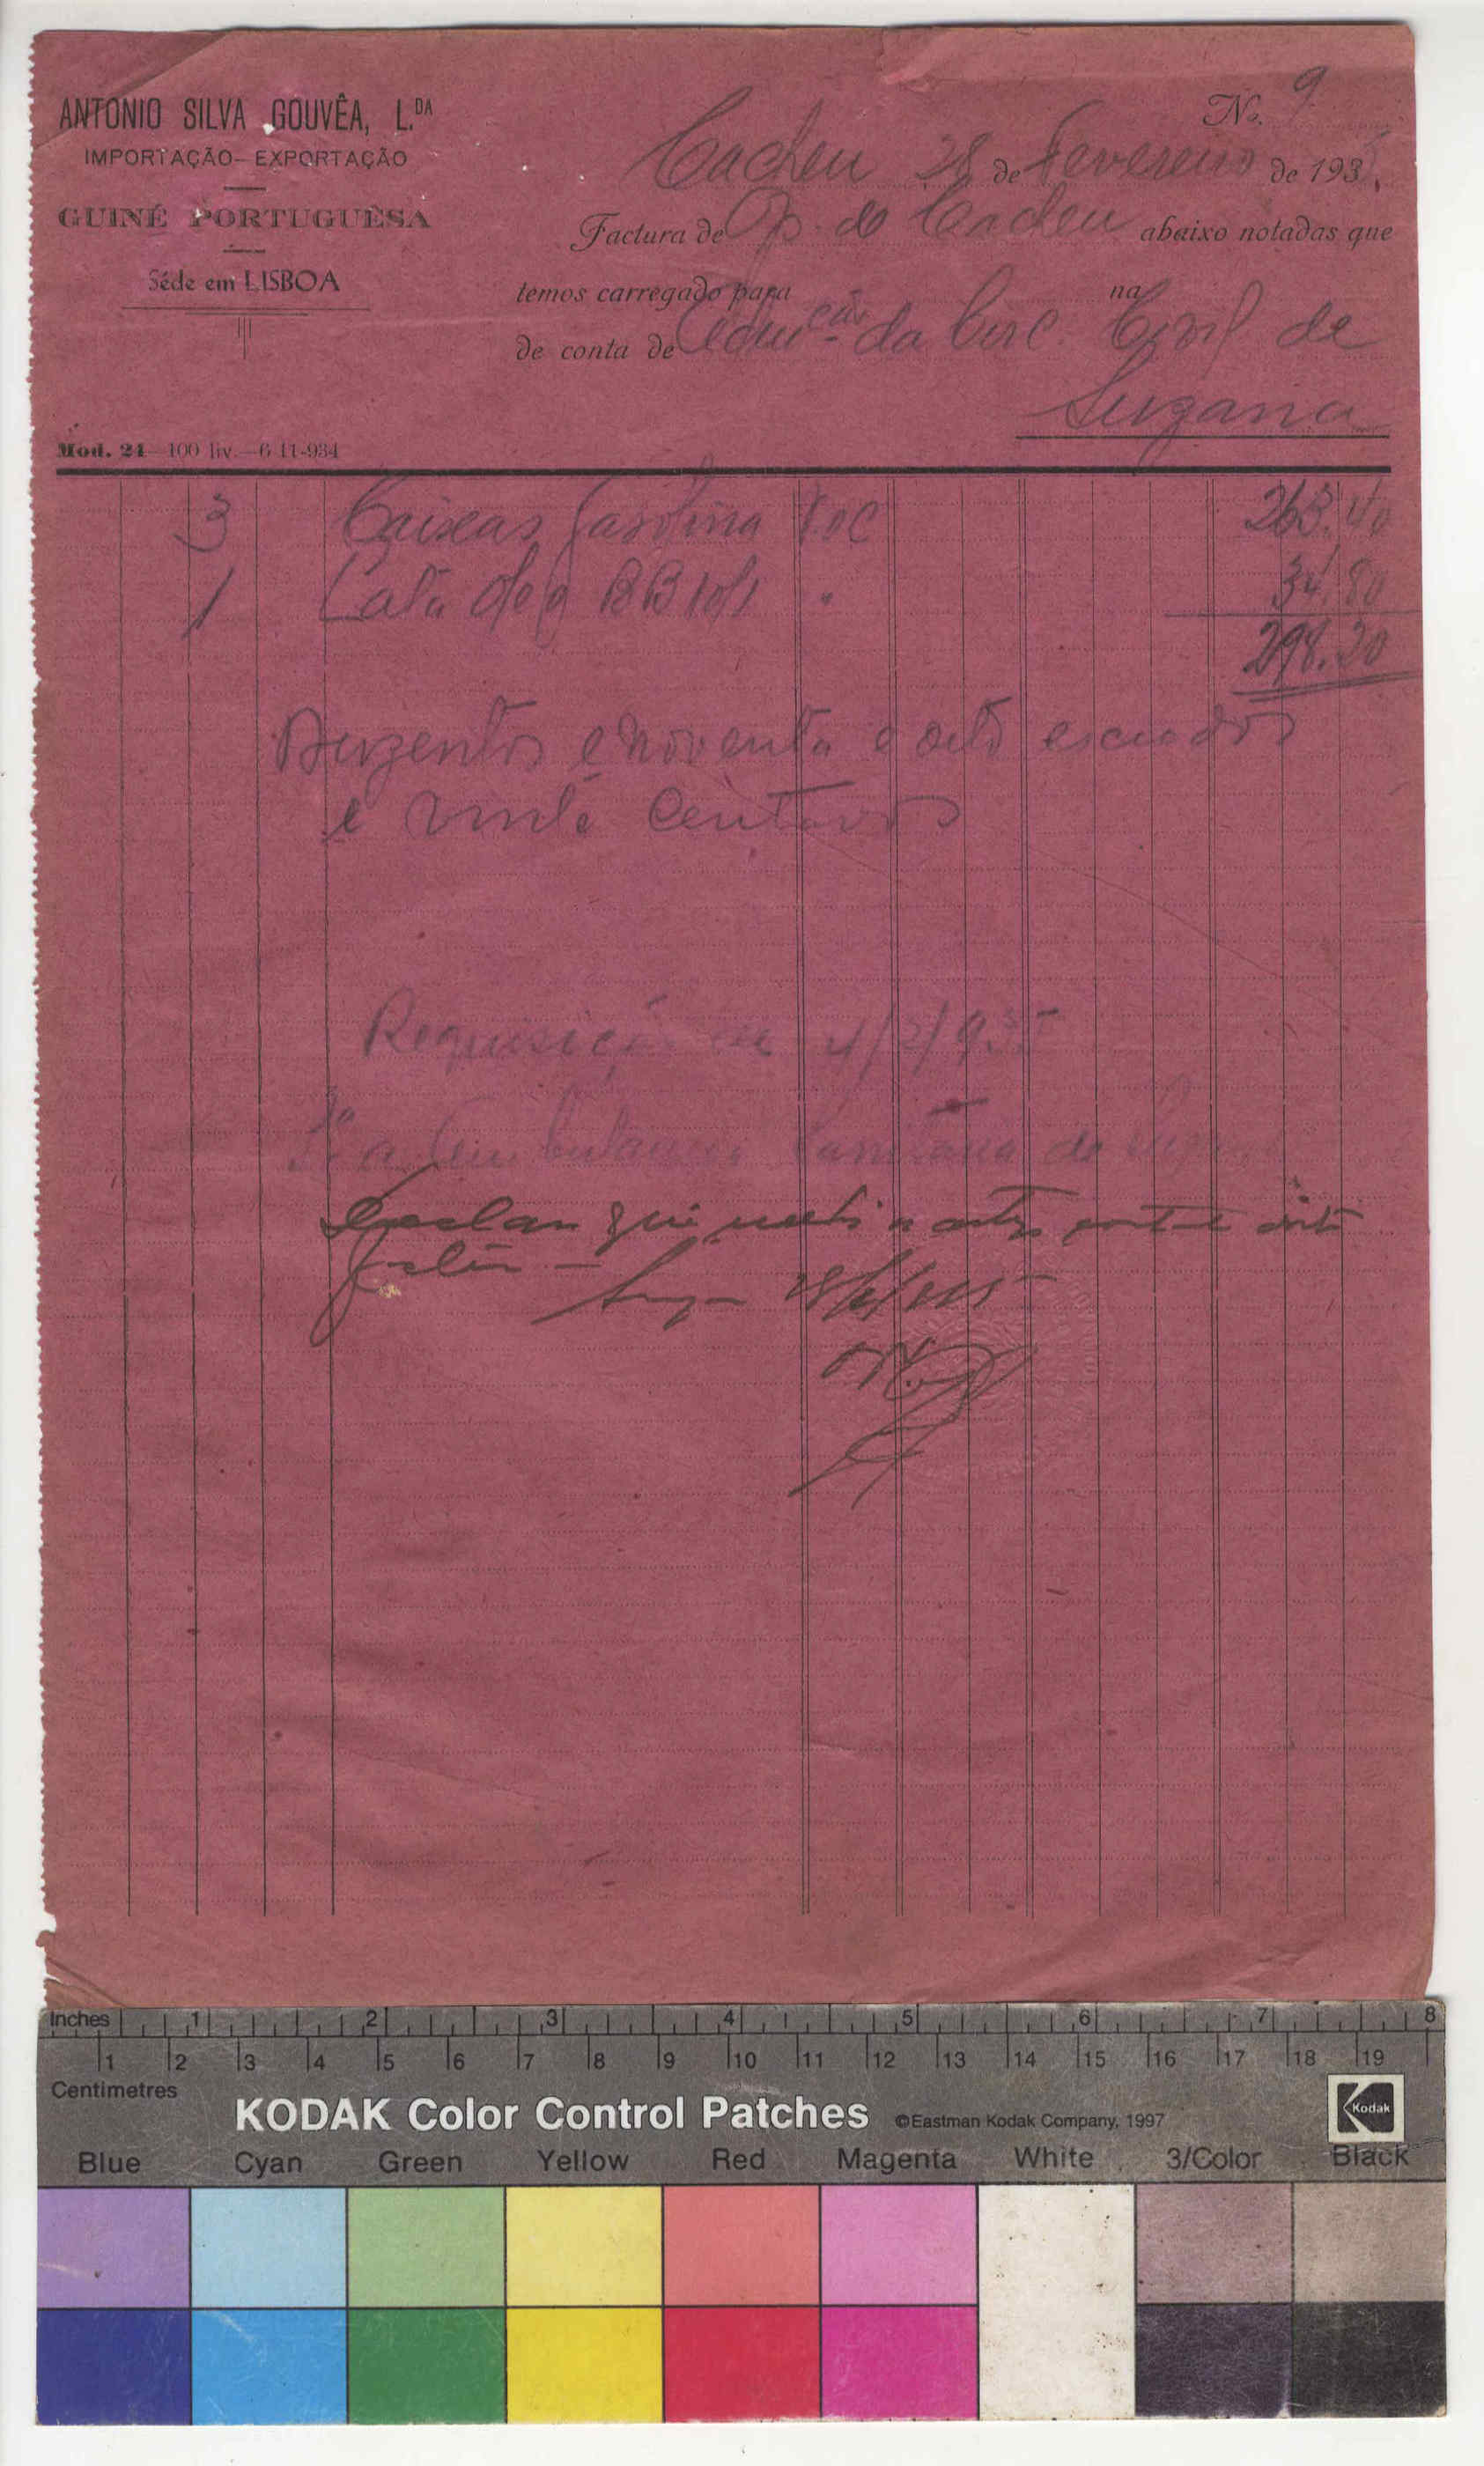 ANTONIO SILVA GOUVÊA, L.DA
IMPORTAÇÃO-EXPORTAÇÃO
GUINÉ PORTUGUÊSA
Séde em LISBOA
No. 9
Cacheu 28 de Fevereiro de 1935
Factura de Op. de Cacheu abaixo notadas que
temos carregado para na
de conta de da Circ. Civil de
Suzana
Mod. 24—100 liv.—6-11-934
3 Caixas gasolina 263.40
1 Lata BB 34.80
298.20
Duzentos e noventa e oito escudos
e vinte centavos
Requisição de 4/2/935
Pa a Ambulancia Sanitaria de
Declaro que
28/2/935
Inches 1 2 3 4 5 6 7 8
1 2 3 4 5 6 7 8 9 10 11 12 13 14 15 16 17 18 19
Centimetres
KODAK Color Control Patches ©Eastman Kodak Company, 1997 Kodak
Blue Cyan Green Yellow Red Magenta White 3/Color Black